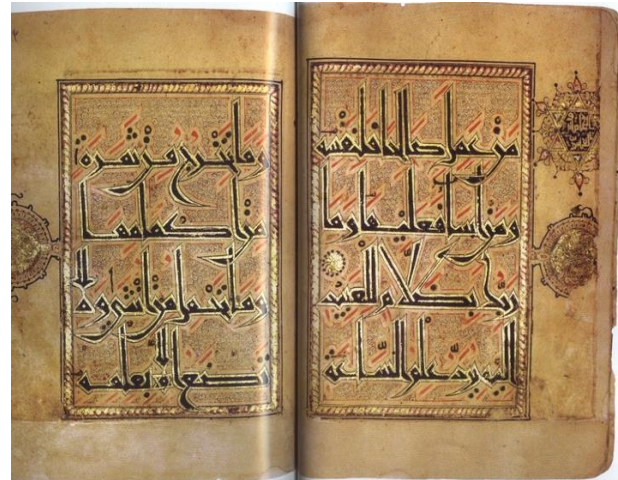 من عمل صالحا فلنفسه
ومن اسا فعليها وما
ربك بظلام للعبيد
اليه يرد علم الساعة
وما تخرج من ثمرة
من اكمامها
وما تحمل من انثى ولا
تضع الا بعلمه